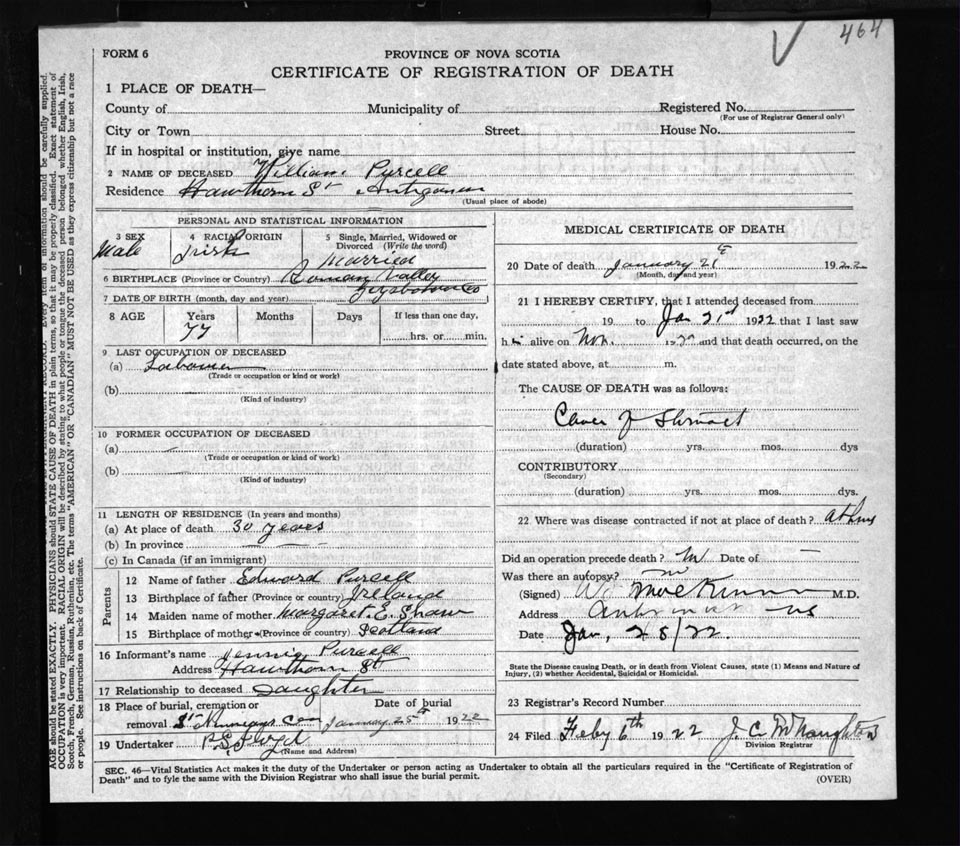 464
FORM 6
PROVINCE OF NOVA SCOTIA
CERTIFICATE OF REGISTRATION OF DEATH
1 PLACE OF DEATH—
County of Municipality of Registered No.
(For use of Registrar General only)
City or Town Street House No.
If in hospital or institution, give name
2 NAME OF DECEASED William Purcell
Residence Hawthorn St Antigonish
(Usual place of abode)
PERSONAL AND STATISTICAL INFORMATION
3 SEX 4 RACIAL ORIGIN 5 Single, Married, Widowed or Divorced (Write the word)
Male Irish Married
6 BIRTHPLACE (Province or Country) Roman Valley
7 DATE OF BIRTH (month, day and year) Guysboro Co
8 AGE Years Months Days If less than one day,
77 hrs. or min.
9 LAST OCCUPATION OF DECEASED
(a) Labourer
(Trade or occupation or kind or work)
(b)
(Kind of industry)
10 FORMER OCCUPATION OF DECEASED
(a)
(Trade or occupation or kind of work)
(b)
(Kind of industry)
11 LENGTH OF RESIDENCE (In years and months)
(a) At place of death 30 years
(b) In province
(c) In Canada (if an immigrant)
Parents
12 Name of father Edward Purcell
13 Birthplace of father (Province or country) Ireland
14 Maiden name of mother Margaret E. Shaw
15 Birthplace of mother (Province or country) Scotland
16 Informant's name Jennie Purcell
Address Hawthorn St
17 Relationship to deceased Daughter
18 Place of burial, cremation or Date of burial
removal St Cem January 25th 1922
19 Undertaker
(Name and Address)
MEDICAL CERTIFICATE OF DEATH
20 Date of death January 21st 1922
(Month, day and year)
21 I HEREBY CERTIFY, that I attended deceased from
19 to Jan 21st 1922 that I last saw
h alive on Nov. 19 and that death occurred, on the
date stated above, at m.
The CAUSE OF DEATH was as follows:
Cancer of Stomach
(duration) yrs. mos. dys
CONTRIBUTORY
(Secondary)
(duration) yrs. mos. dys.
22 Where was disease contracted if not at place of death? at home
Did an operation precede death? No Date of —
Was there an autopsy? no
(Signed) W. MacKinnon M.D.
Address Antigonish NS
Date Jan, 28/22.
State the Disease causing Death, or in death from Violent Causes, state (1) Means and Nature of
Injury, (2) whether Accidental, Suicidal or Homicidal.
23 Registrar's Record Number
24 Filed Feby 6th 1922 J. C. McNaughton
Division Registrar
SEC. 46—Vital Statistics Act makes it the duty of the Undertaker or person acting as Undertaker to obtain all the particulars required in the "Certificate of Registration of
Death" and to fyle the same with the Division Registrar who shall issue the burial permit.
(OVER)
AGE should be stated EXACTLY. PHYSICIANS should STATE CAUSE OF DEATH in plain terms, so that it may be properly classified. Exact statement of
OCCUPATION is very important. RACIAL ORIGIN will be described by stating to what people or tongue the deceased person belonged whether English, Irish,
Scotch, French, German, Russian, Ruthenian, etc. The terms "AMERICAN" OR "CANADIAN" MUST NOT BE USED as they express citizenship but not a race
or people. See instructions on back of Certificate.